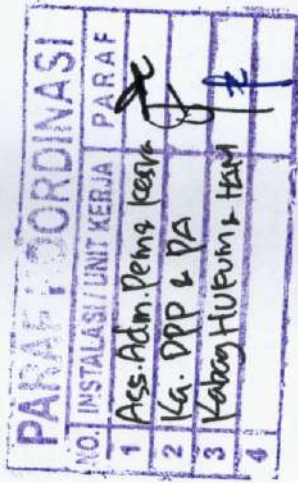 PARAF KOORDINASI
NO. INSTALASI / UNIT KERJA PARAF
1 Ass. Adm. Pem & Kesra
2 Ka. DPP & PA
3 Kabag Hukum & HAM
4